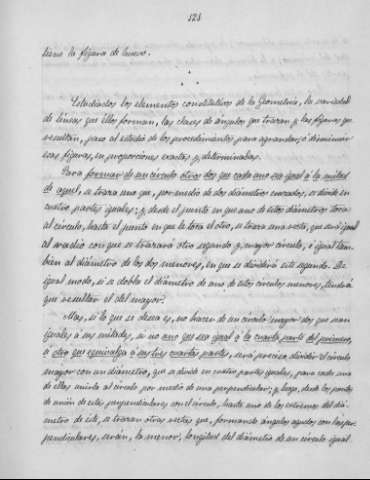 121
tiene la figura de huevo.
Estudiados los elementos constitutivos de la Geometría, la variedad
de líneas que ellos forman, las clases de ángulos que trazan y las figuras que
resultan, paso al estudio de los procedimientos para agrandar, ó disminuir
esas figuras, en proporciones exactas y determinadas.
Para formar de un círculo otros dos que cada uno sea igual á la mitad
de aquel, se traza uno que, por medio de dos diámetros cruzados, se divide en
cuatro partes iguales; y desde el punto en que uno de estos diámetros toca
al círculo, hasta el punto en que le toca el otro, se traza una recta, que será igual
al radio con que se trazará otro segundo y mayor círculo, é igual tam-
bien al diámetro de los dos menores, en que se dividirá este segundo. De
igual modo, si se dobla el diámetro de uno de estos círculos menores, tendrá
que resultar el del mayor.
Mas, si lo que se desea es, no hacer de un círculo mayor dos que sean
iguales á sus mitades, si no uno que sea igual á la cuarta parte del primero,
ó otro que equivalga á sus tres cuartas partes, será preciso dividir el círculo
mayor con un diámetro, que se divide en cuatro partes iguales, para cada una
de ellas unirla al círculo por medio de una perpendicular; y luego, desde los puntos
de unión de estas perpendiculares con el círculo, hasta uno de los extremos del diá-
metro de este, se trazan otras rectas que, formando ángulos agudos con las per-
pendiculares, serán, la menor, longitud del diámetro de un círculo igual